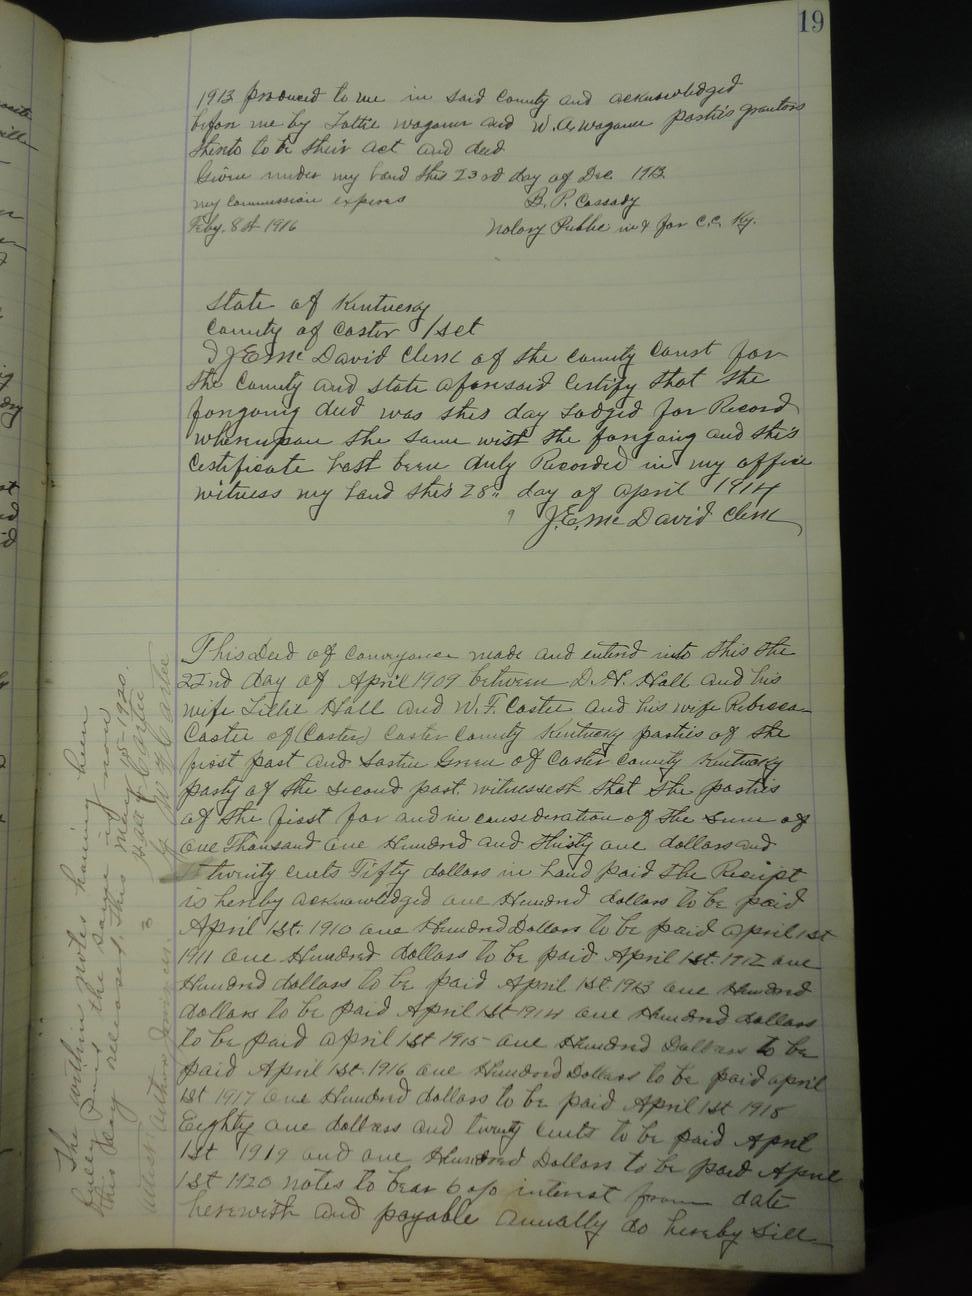 19
1913 produced to me in said County and acknowledged
before me by Lottie Wagoner and W. A. Wagoner parties grantors
thento to be their act and deed
Given under my hand this 23rd day of Dec 1913
my commission expires B. P. Cassady
Feby. 8th 1916 Notary Public in & for C.C. Ky.
State of Kentucky
County of Carter / Sct
I J.E. McDavid Clerk of the County Court for
the County and State aforesaid Certify that the
forgoing deed was this day Lodged for Record
whereupon the same with the forgoing and this
Certificate hast been duly Recorded in my office
witness my hand this 28" day of April 1914
J.E. McDavid Clerk
This Deed of Conveyance made and enterd into this the
22nd day of April 1909 between D. H. Hall and his
wife Lillie Hall and W. F. Carter and his wife Rebecca
Carter of (Carter) Carter County Kentucky parties of the
first part and Green of Carter County Kentucky
party of the second part. witnesseth that the parties
of the first for and in consideration of the sum of
one Thousand one Hundred and thirty one dollars and
twenty cents Fifty dollars in hand paid the Receipt
is hereby acknowledged one Hundred dollars to be paid
April 1st. 1910 one Hundred Dollars to be paid April 1st
1911 one Hundred dollars to be paid April 1st. 1912 one
Hundred dollars to be paid April 1st. 1913 one Hundred
dollars to be paid April 1st 1914 one Hundred dollars
to be paid April 1st 1915 one Hundred Dollars to be
paid April 1st. 1916 one Hundred Dollars to be paid april
1st 1917 one Hundred dollars to be paid April 1st 1918
Eighty one dollars and twenty cents to be paid April
1st 1919 and one Hundred Dollars to be paid April
1st 1920 notes to bear 6 o/o interest from date
herewith and payable anually do hereby sell
The within notes having been
fully paid the same is now
this day released. This May 15-1920.
Hall & Carter
By W. F. Carter
Attest